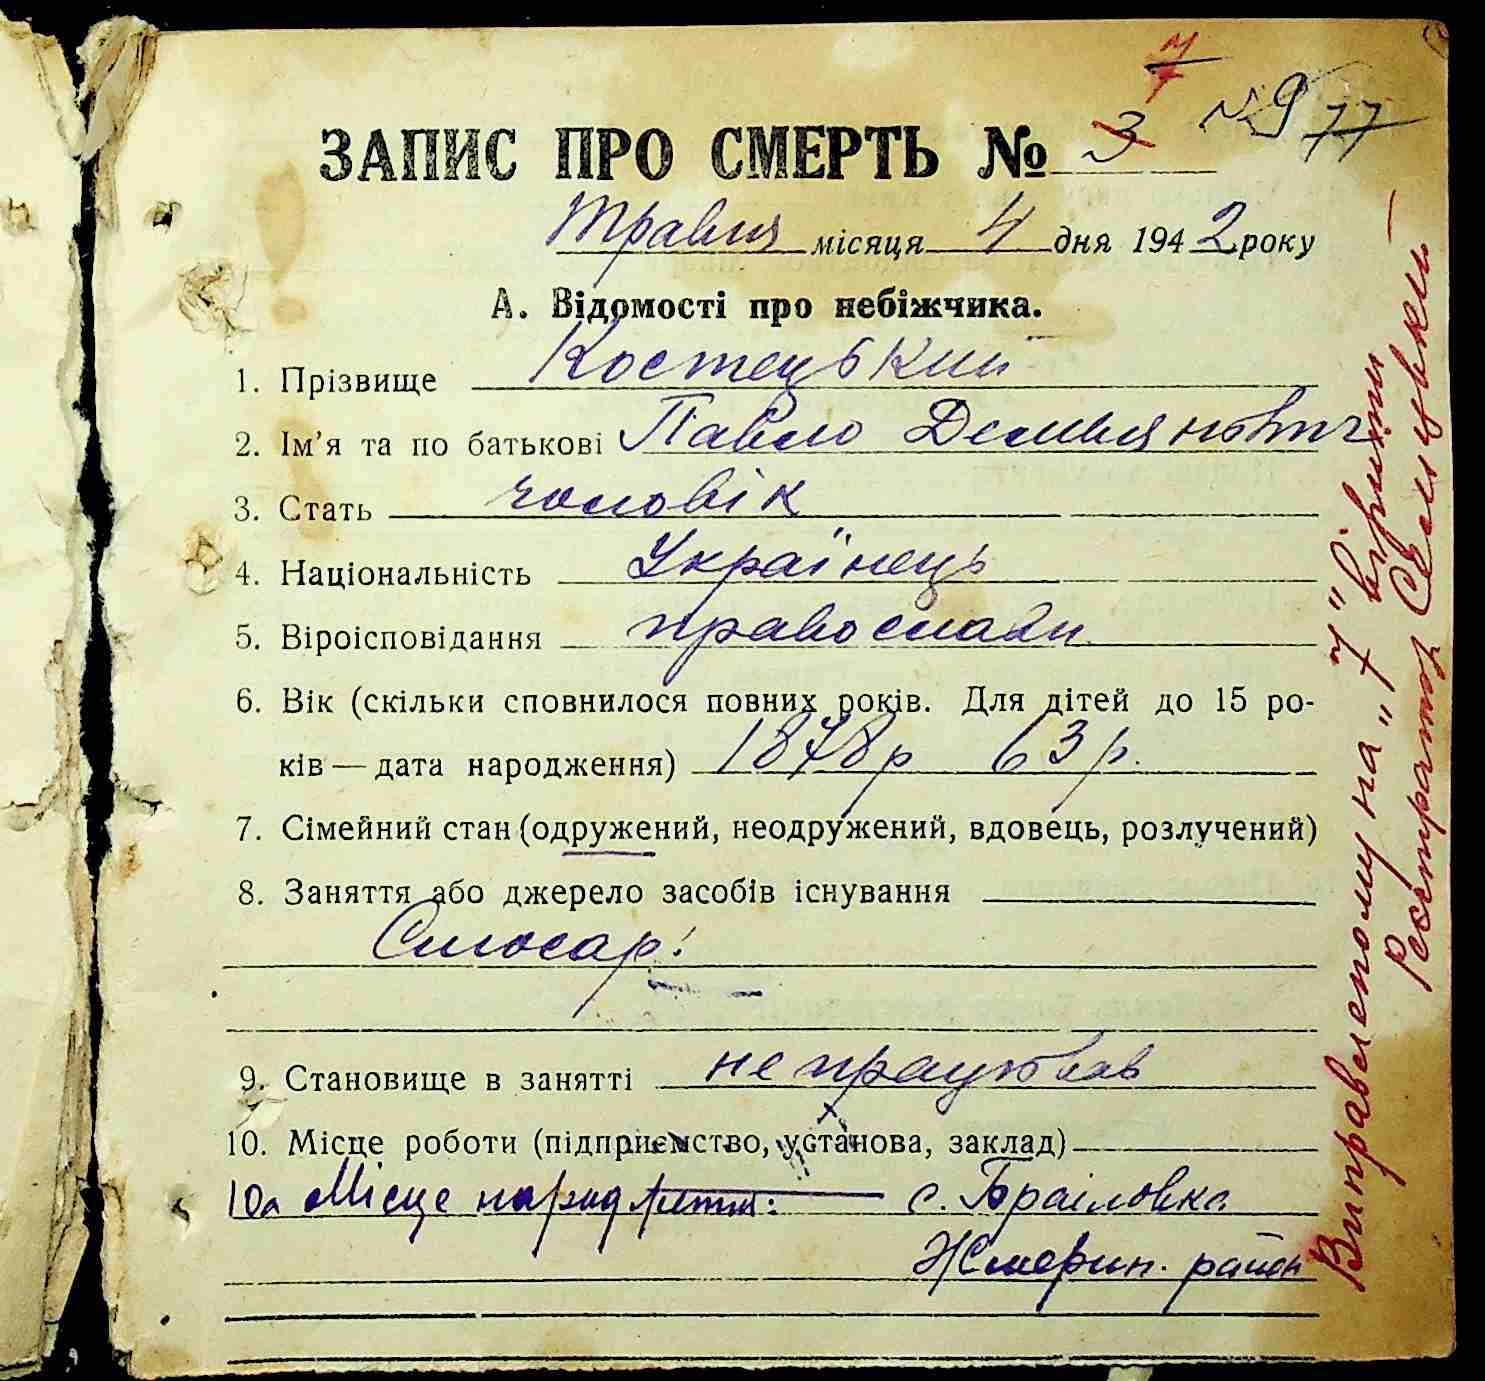 7
ЗАПИС ПРО СМЕРТЬ № 3 №9 77
Травня місяця 4 дня 1942 року
А. Відомості про небіжчика.
1. Прізвище Костецький
2. Ім'я та по батькові Павло Демьянович
3. Стать чоловік
4. Національність Українець
5. Віроісповідання православн.
6. Вік (скільки сповнилося повних років. Для дітей до 15 ро-
ків — дата народження) 1878р 63 р.
7. Сімейний стан (одружений, неодружений, вдовець, розлучений)
8. Заняття або джерело засобів існування
Слюсар
9. Становище в занятті не працював
10. Місце роботи (підприємство, установа, заклад)
10а Місце народження: с. Браіловка
Жмерин. район
Виправленому на „7" вірити
Реєстратор